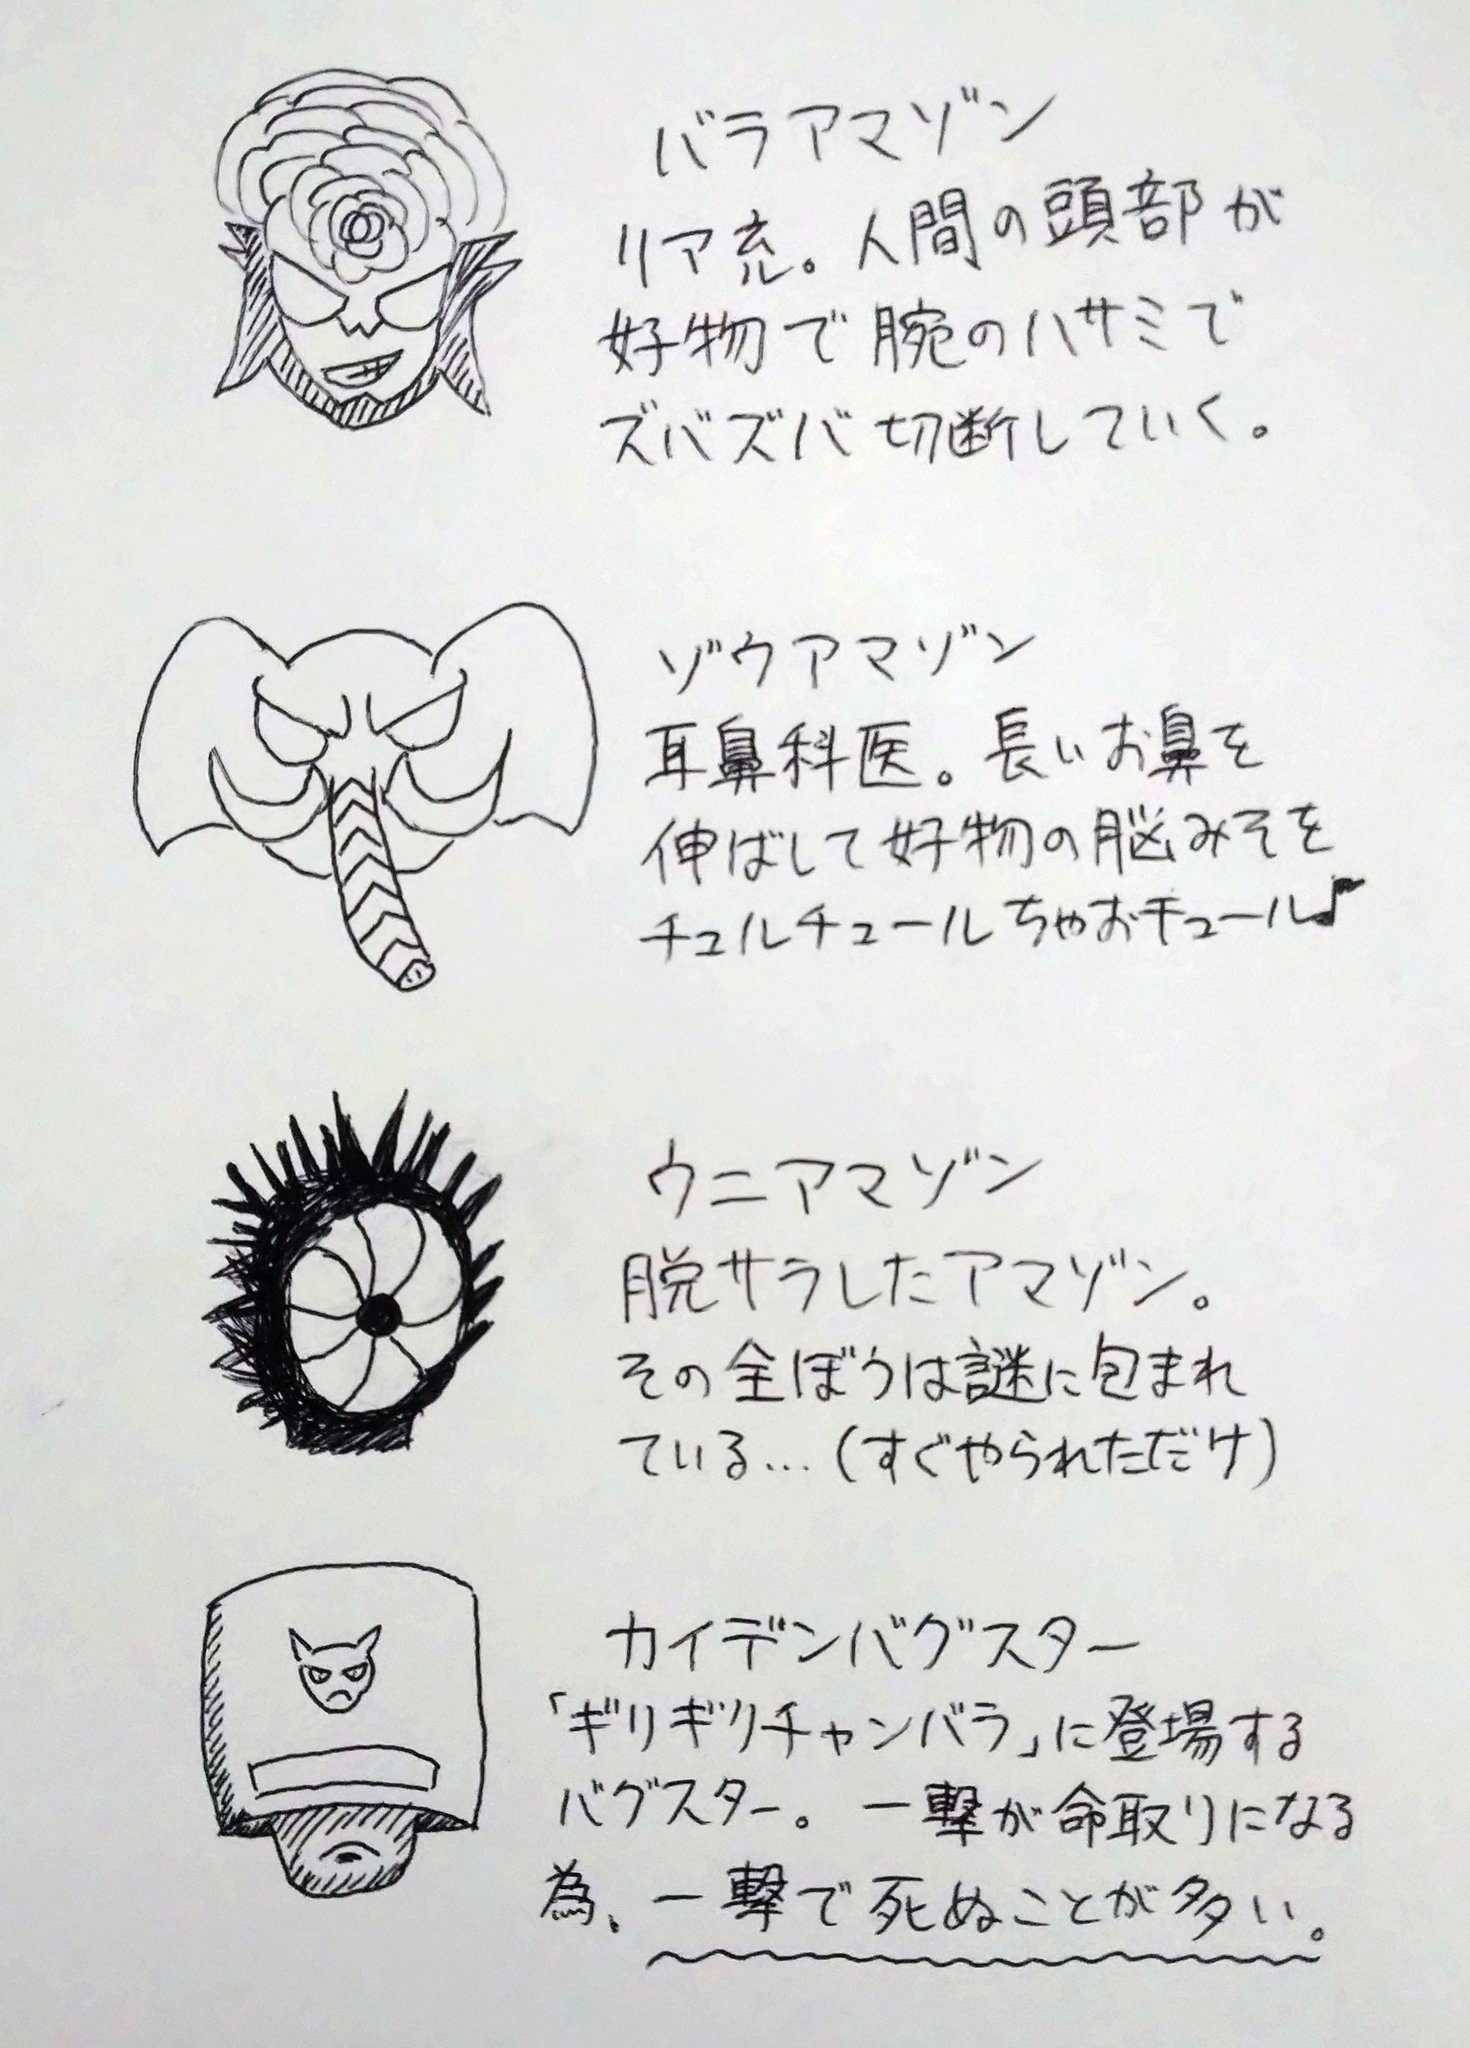 バラアマゾン
リア充。人間の頭部が
好物で腕のハサミで
ズバズバ切断していく。
ゾウアマゾン
耳鼻科医。長いお鼻を
伸ばして好物の脳みそを
チュルチュールちゃおチュール♪
ウニアマゾン
脱サラしたアマゾン。
その全ぼうは謎に包まれ
ている…(すぐやられただけ)
カイデンバグスター
「ギリギリチャンバラ」に登場する
バグスター。一撃が命取りになる
為、一撃で死ぬことが多い。